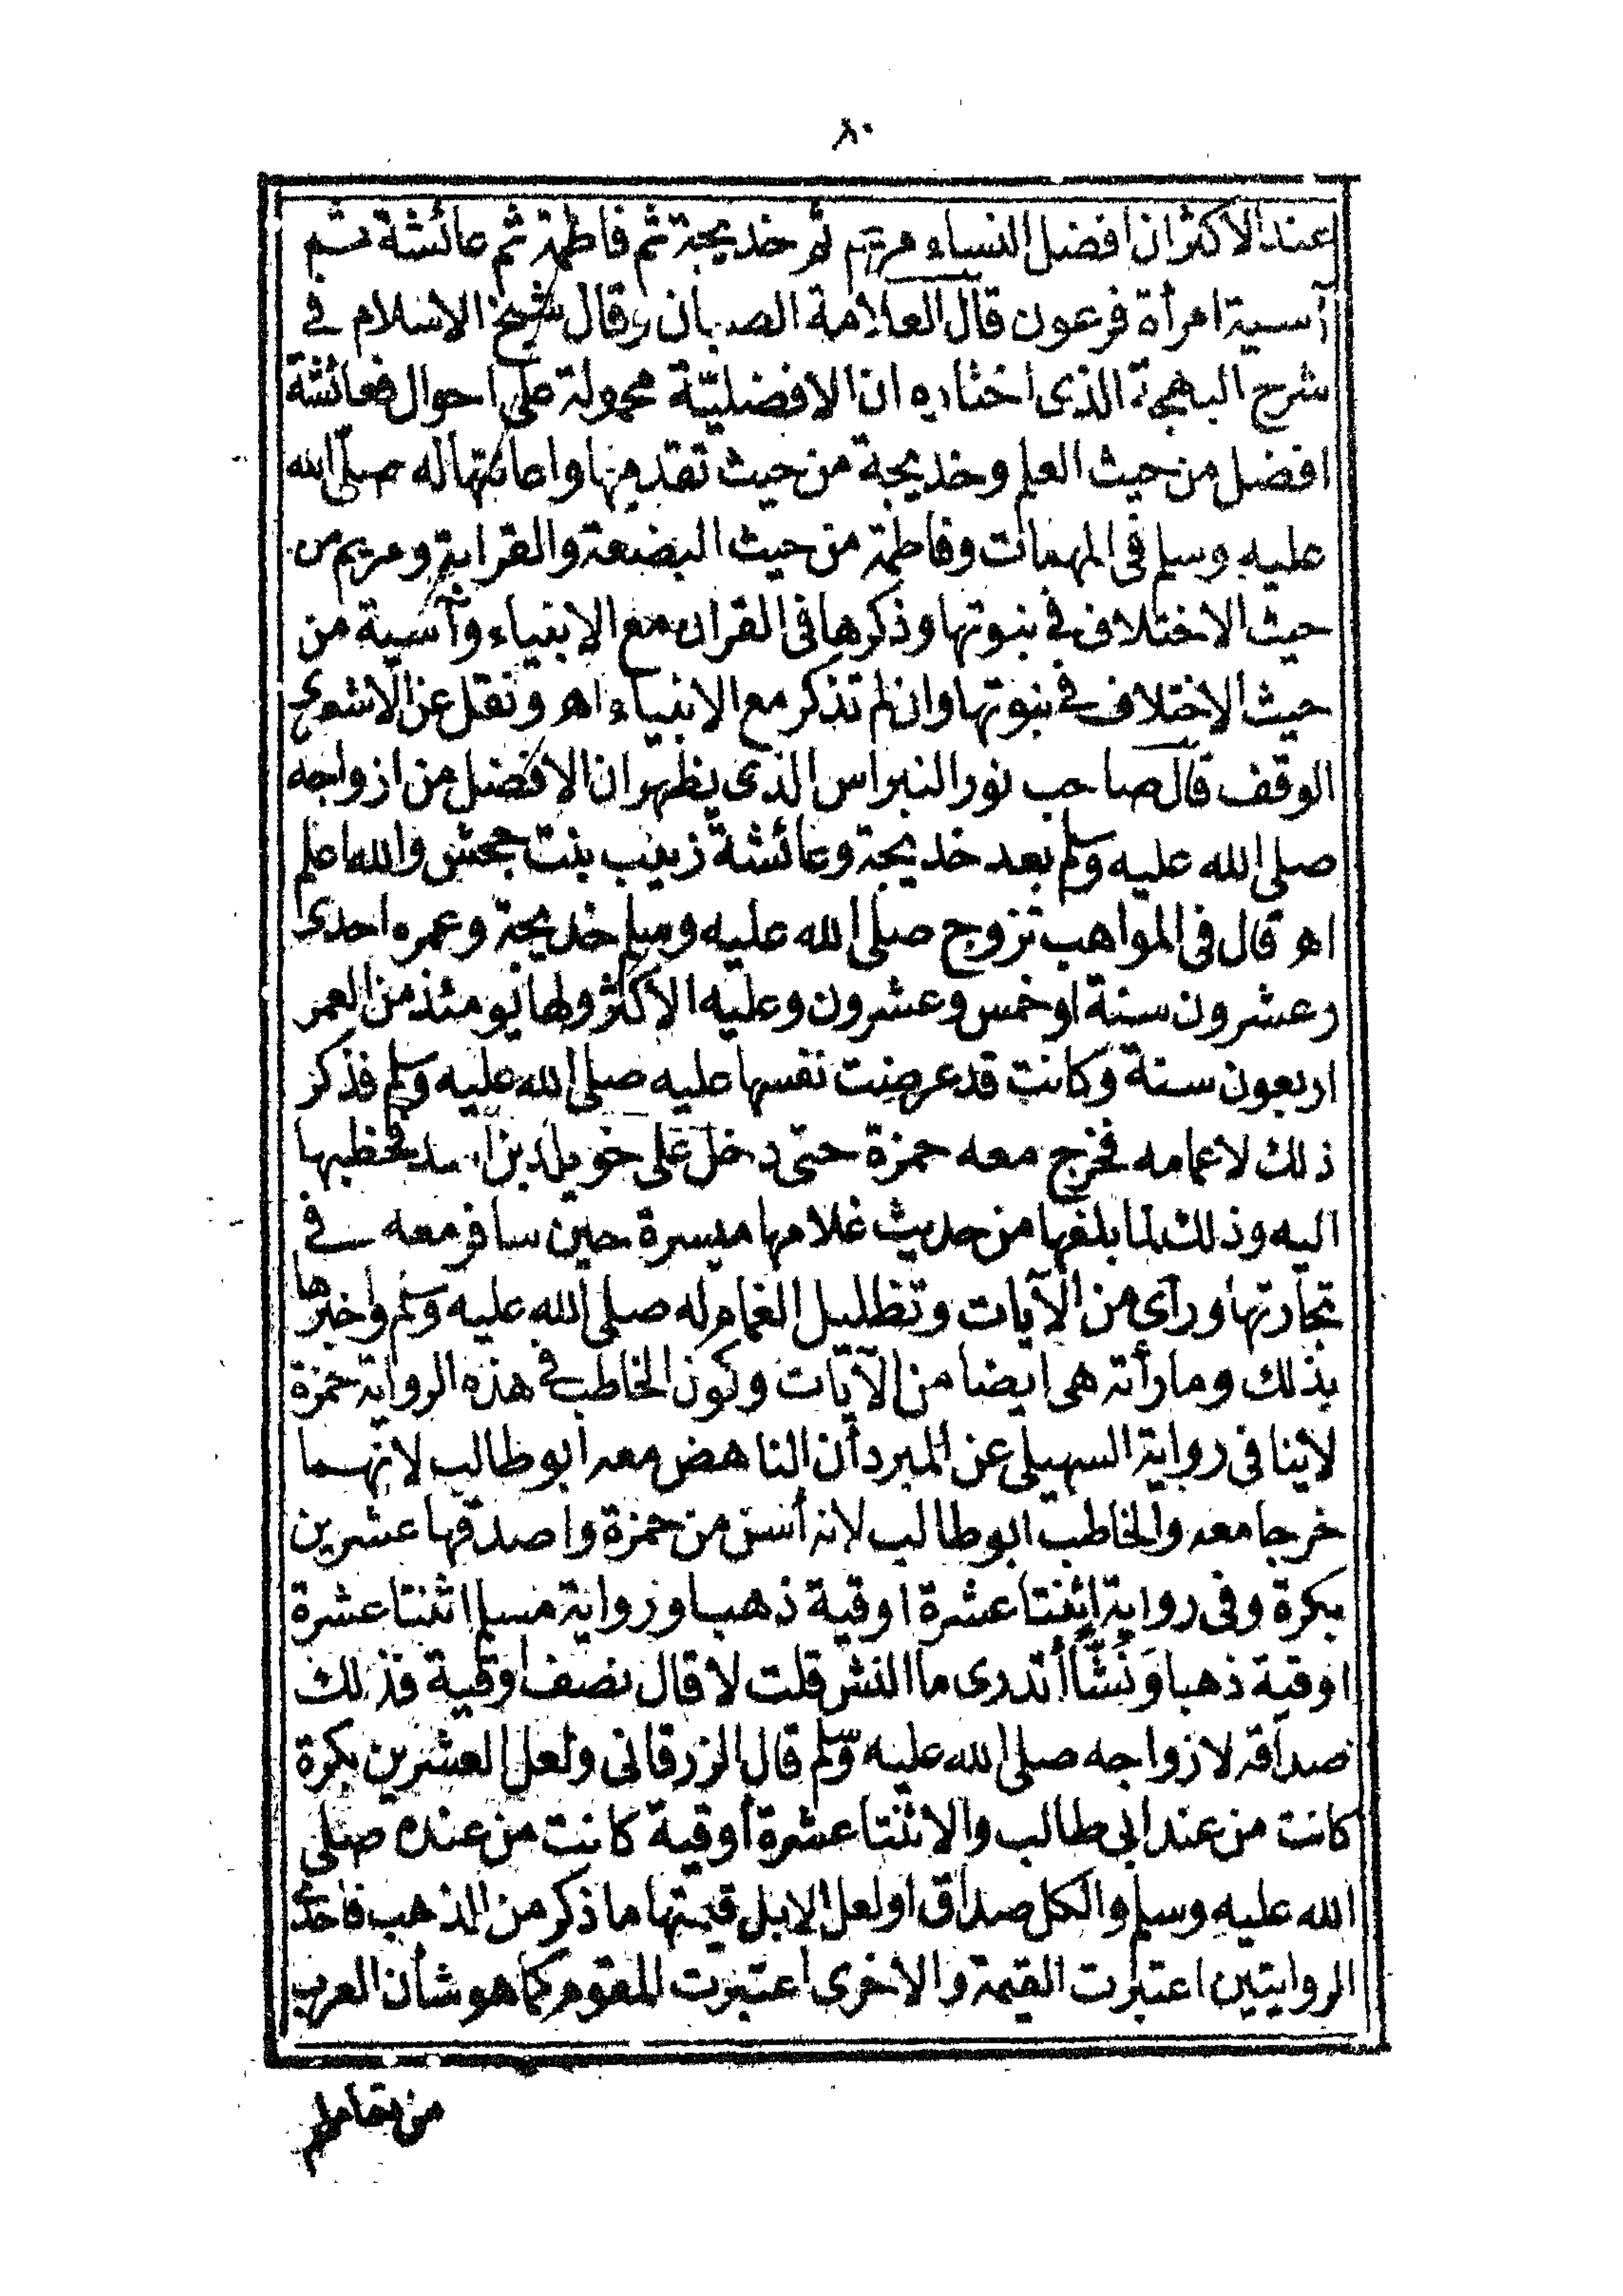 ٨٠
عند الاكثر ان افضل النساء مريم ثم خديجة ثم فاطمة ثم عائشة ثم
آسية امرأة فرعون قال العلامة الصبان وقال شيخ الاسلام في
شرح البهجة الذى اختاره ان الافضليّة محمولة على احوال فعائشة
افضل من حيث العلم وخديجة من حيث تقدمها واعانتها له صلى الله
عليه وسلم فى المهمات وفاطمة من حيث البضعة والقرابة ومريم من
حيث الاختلاف في نبوتها وذكرها فى القران مع الانبياء وآسية من
حيث الاختلاف في نبوتها وان لم تذكر مع الانبياء اهـ ونقل عن الاشعرى
الوقف قال صاحب نور النبراس الذى يظهر ان الافضل من ازواجه
صلى الله عليه وسلم بعد خديجة وعائشة زينب بنت جحش والله اعلم
اهـ قال فى المواهب تزوج صلى الله عليه وسلم خديجة وعمره احدى
وعشرون سنة او خمس وعشرون وعليه الاكثر ولها يومئذ من العمر
اربعون سنة وكانت قد عرضت نفسها عليه صلى الله عليه وسلم فذكر
ذلك لاعمامه فخرج معه حمزة حتى دخل على خويلد بن اسد فخطبها
اليه وذلك لما بلغها من حديث غلامها ميسرة حين سافر معه في
تجارتها ورأى من الآيات وتظليل الغمام له صلى الله عليه وسلم واخبرها
بذلك وما رأته هى ايضا من الآيات وكون الخاطب في هذه الرواية حمزة
لاينا فى رواية السهيلى عن المبرد أن الناهض معه ابو طالب لانهما
خرجا معه والخاطب ابو طالب لانه أسن من حمزة واصدقها عشرين
بكرة وفى رواية اثنتا عشرة اوقية ذهبا وزواية مسلم اثنتا عشرة
اوقية ذهبا وَنَشًّا أتدرى ما النش قلت لا قال نصف اوقية فذلك
صداقه لازواجه صلى الله عليه وسلم قال الزرقانى ولعل العشرين بكرة
كانت من عند ابى طالب والاثنتا عشرة أوقية كانت من عنده صلى
الله عليه وسلم والكل صداق او لعل الابل قيمتها ما ذكر من الذهب فاحدى
الروايتين اعتبرت القيمة والاخرى اعتبرت المقوم كما هو شأن العرب